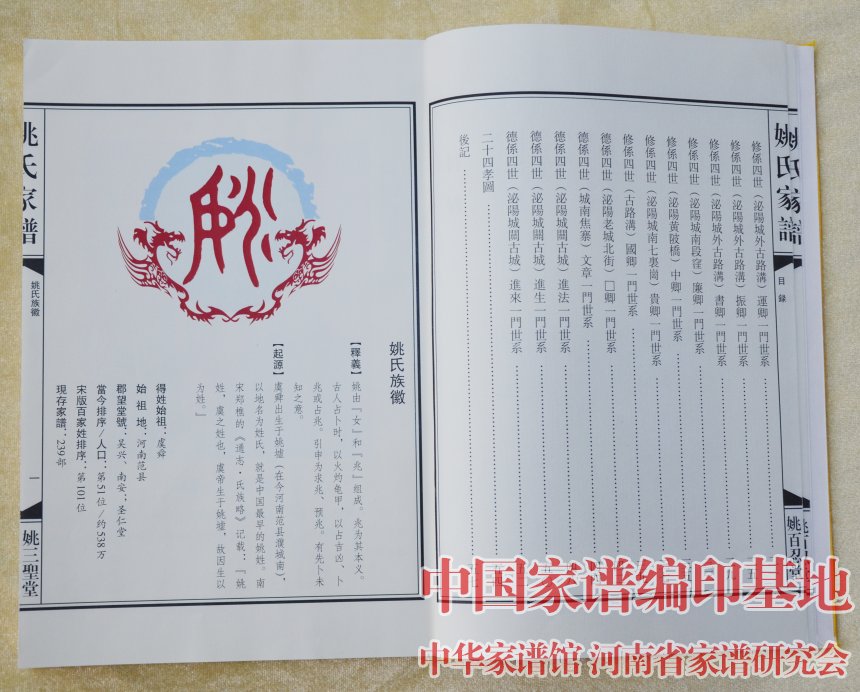 姚氏家譜
目録
姚百忍堂
修係四世（泌陽城外古路溝）運卿一門世系
修係四世（泌陽城外古路溝）振卿一門世系
修係四世（泌陽城外古路溝）書卿一門世系
修係四世（泌陽城南段窪）廉卿一門世系
修係四世（泌陽黄陂橋）中卿一門世系
修係四世（泌陽城南七裏崗）貴卿一門世系
修係四世（古路溝）國卿一門世系
德係四世（泌陽老城北街）□卿一門世系
德係四世（城南焦寨）文章一門世系
德係四世（泌陽城關古城）進法一門世系
德係四世（泌陽城關古城）進生一門世系
德係四世（泌陽城關古城）進來一門世系
二十四孝圖
後記
姚氏族徽
【釋義】
姚由『女』和『兆』組成。兆为其本义。
古人占卜时，以火灼龟甲，以占吉凶、卜
兆或占兆。引申为求兆、预兆。有先卜未
知之意。
【起源】
虞舜出生于姚墟（在今河南范县濮城南），
以地名为姓氏，就是中国最早的姚姓。南
宋郑樵的《通志·氏族略》记载：『姚
姓，虞之姓也，虞帝生于姚墟，故因生以
为姓。』
得姓始祖：虞舜
始祖地：河南范县
郡望堂號：吴兴、南安；圣仁堂
當今排序/人口：第51位/约538万
宋版百家姓排序：第101位
現存家譜：239部
姚氏家譜
姚氏族徽
一
姚三聖堂
中国家谱编印基地
中华家谱馆 河南省家谱研究会